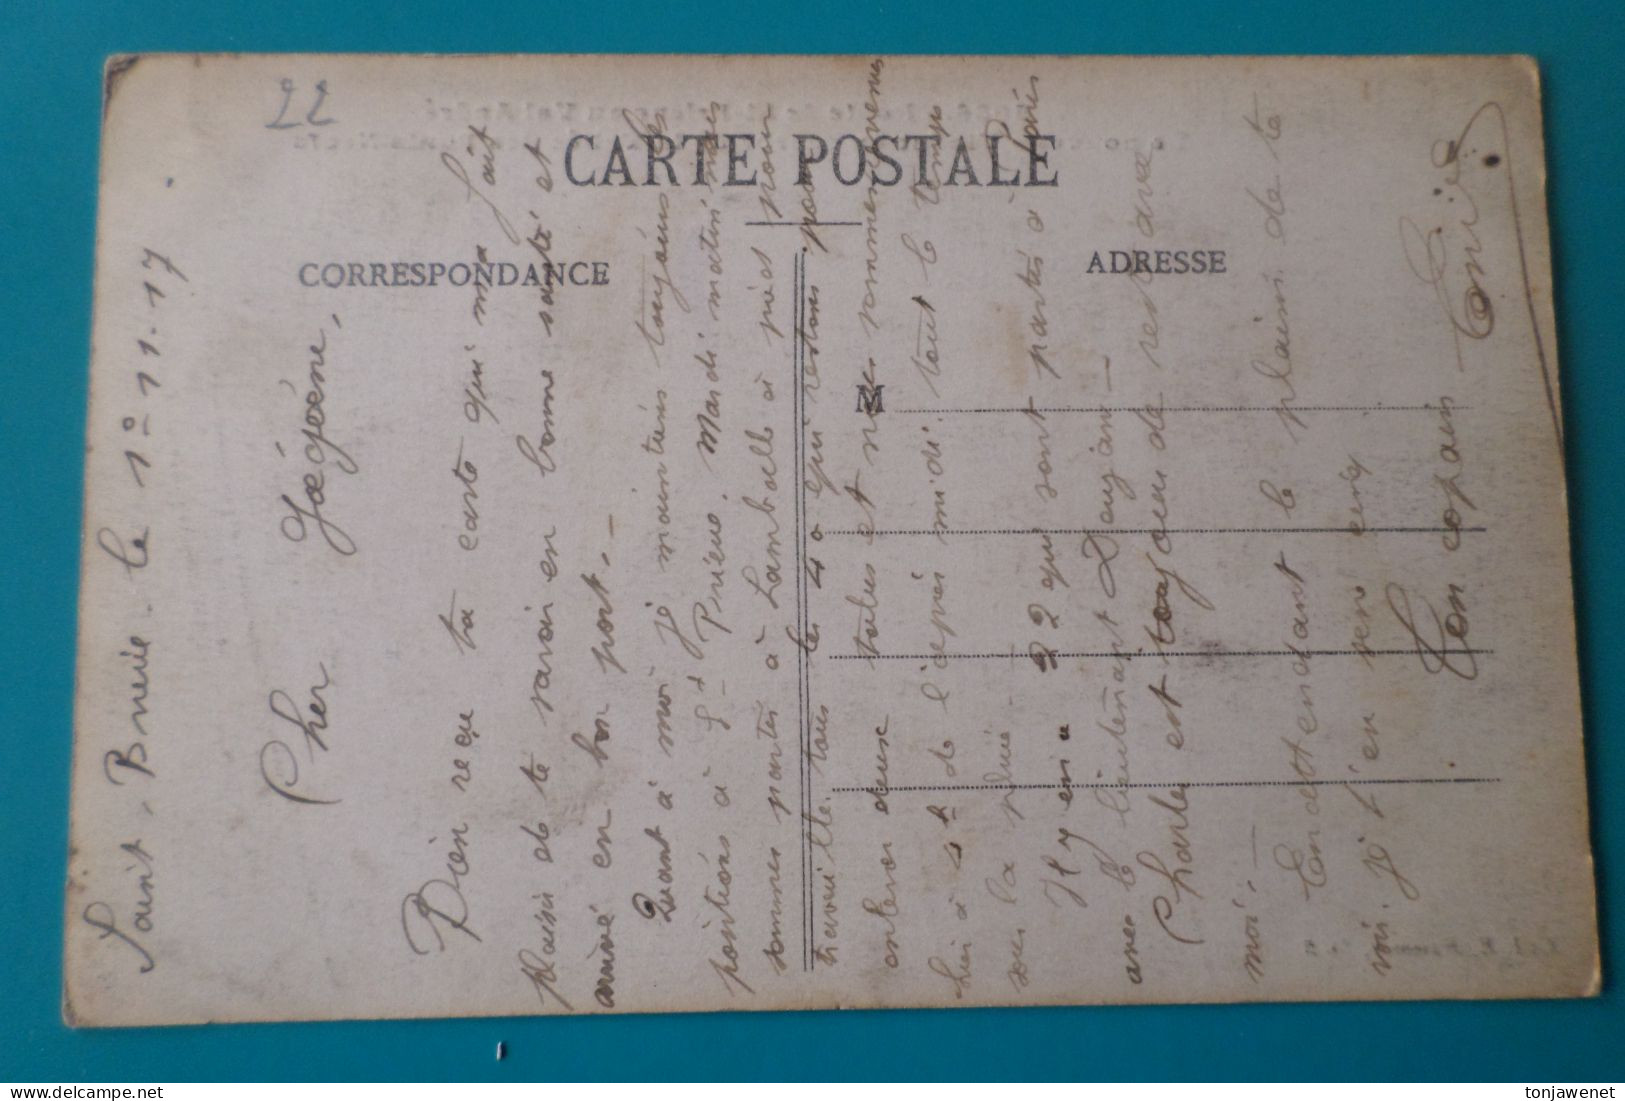 22
CARTE POSTALE
CORRESPONDANCE
ADRESSE
M
Saint-Brieuc le 1° 11.17
Cher
Bien reçu ta carte qui m'a fait
plaisir de te savoir en bonne santé et
arrivé en bon port. —
Quant à moi je maintiens toujours les
positions à St Brieuc. Mardi matin nous
sommes partis à Lamballe à pied pour
travaille. tous les 40 qui restons pour
enlever deux talus et nous sommes revenus
hier à 4h de l'après midi. tout le temps
sous la pluie —
Il y en a 22 qui sont partis à Paris
avec le lieutenant Daujan —
Charles est toujours de reste avec
moi. —
En attendant le plaisir de te
voir, je t'en serre cinq
Ton copain
tonjawenet
delcampe.net